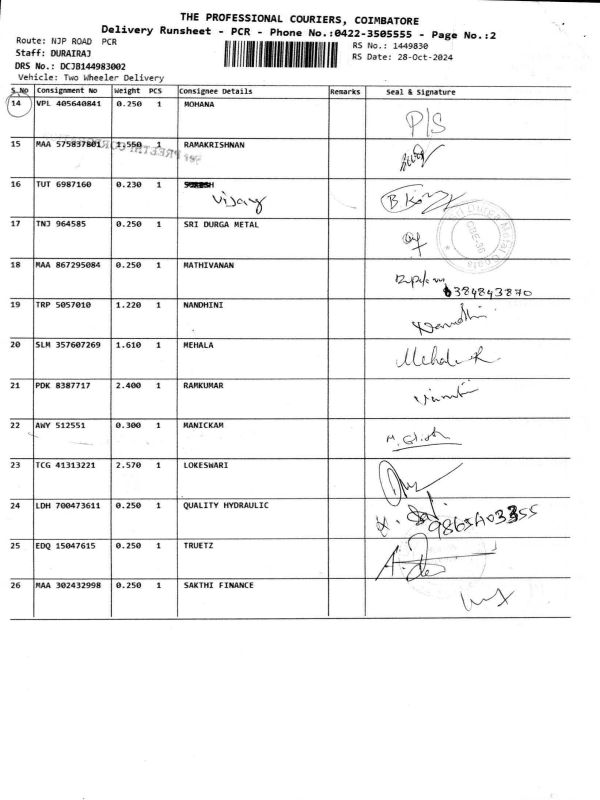 THE PROFESSIONAL COURIERS, COIMBATORE
Delivery Runsheet - PCR - Phone No.:0422-3505555 - Page No.:2
Route: NJP ROAD PCR
RS No.: 1449830
Staff: DURAIRAJ
RS Date: 28-Oct-2024
DRS No.: DCJB144983002
Vehicle: Two Wheeler Delivery
S.No Consignment No Weight PCS Consignee Details Remarks Seal & Signature
14 VPL 405640841 0.250 1 MOHANA P/S
15 MAA 575837801 1.550 1 RAMAKRISHNAN
16 TUT 6987160 0.230 1 SURESH
Vijay
17 TNJ 964585 0.250 1 SRI DURGA METAL
18 MAA 867295084 0.250 1 MATHIVANAN
384843870
19 TRP 5057010 1.220 1 NANDHINI Nandhini
20 SLM 357607269 1.610 1 MEHALA Mehala R.
21 PDK 8387717 2.400 1 RAMKUMAR
22 AWY 512551 0.300 1 MANICKAM
23 TCG 41313221 2.570 1 LOKESWARI
24 LDH 700473611 0.250 1 QUALITY HYDRAULIC
25 EDQ 15047615 0.250 1 TRUETZ
26 MAA 302432998 0.250 1 SAKTHI FINANCE